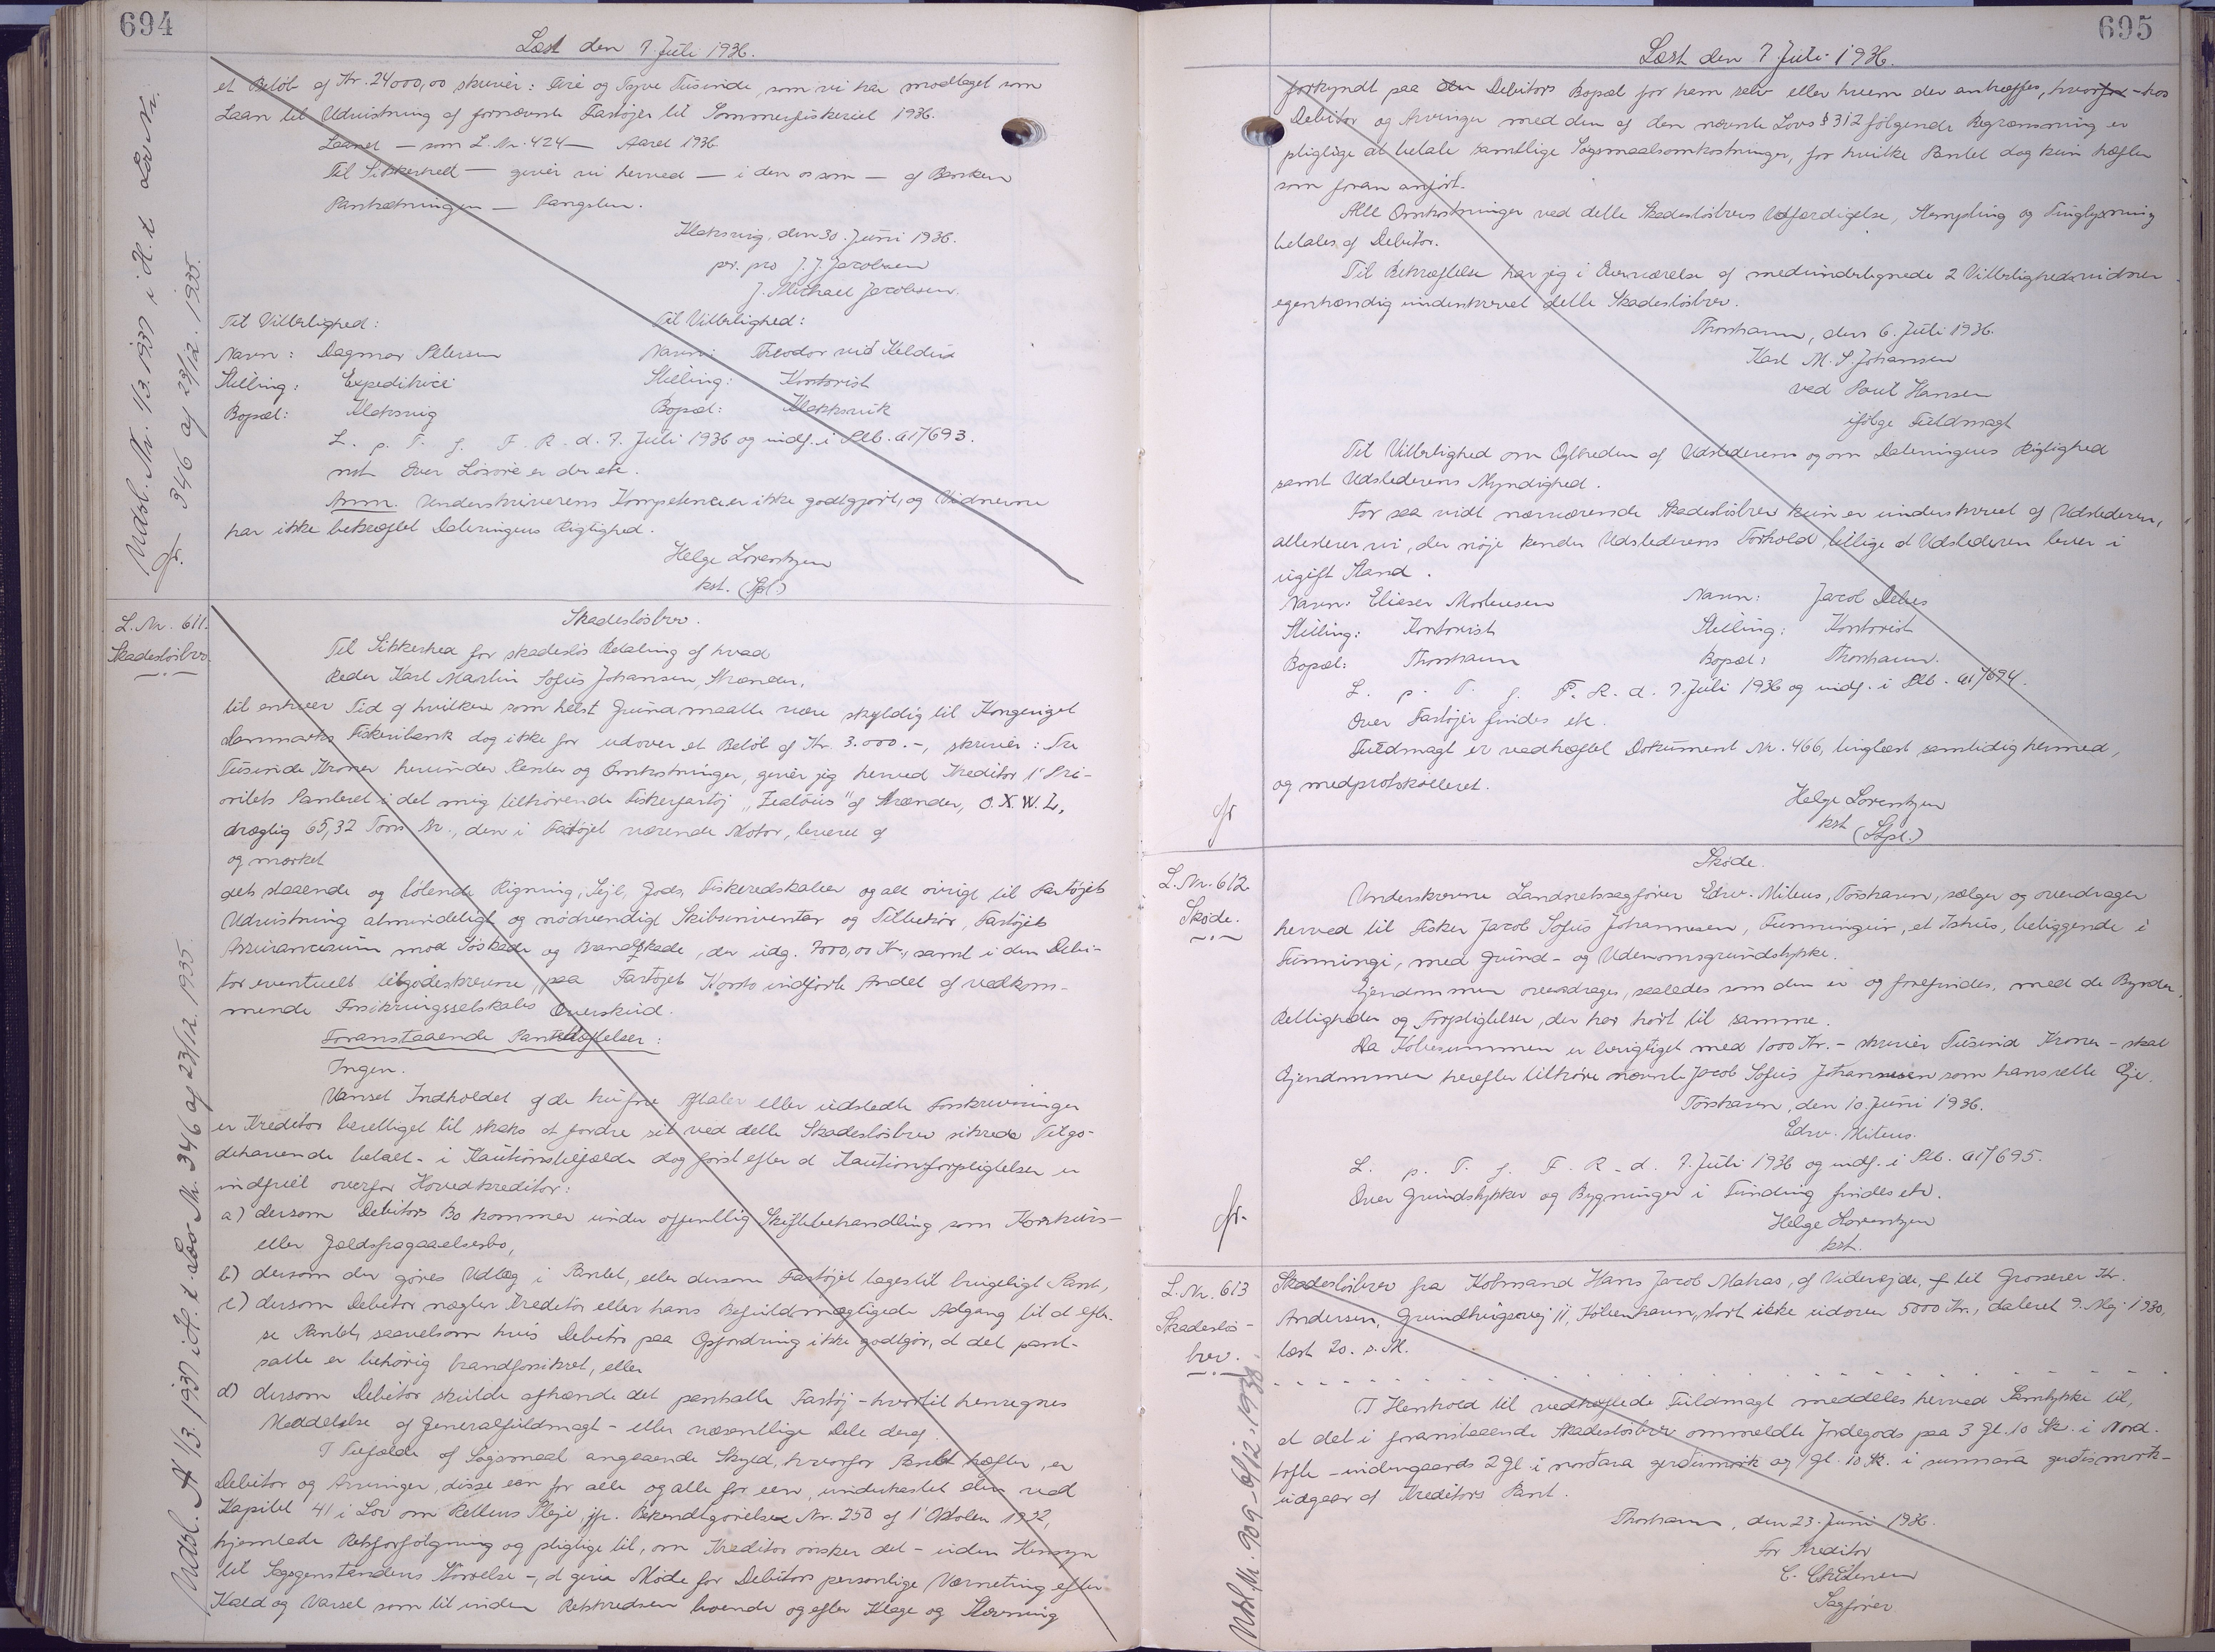 694
Læst den 7. Juli 1936.
et Beløb af Kr. 24000,00 skriver: Fire og Tyve Tusinde, som vi har modtaget som
Laan til Udrustning af fornævnte Fartøjer til Sommerfiskeriet 1936.
Laanet — som L. Nr. 424 — Aaret 1936
Til Sikkerhed — giver vi herved — i den os som — af Banken
Pantsætningen — Fangsten.
Klaksvig, den 30. Juni 1936.
per. pro J. J. Jacobsen
J. Michael Jacobsen.
Til Vitterlighed: Til Vitterlighed:
Navn: Dagmar Petersen Navn: Theodor við Keldu
Stilling: Expeditrice Stilling: Kontorist
Bopæl: Klaksvig Bopæl: Klakksvik
L. p. T. f. F. R. d. 7. Juli 1936 og indf. i Plb. a17693.
nst Over Løsøre er der etc.
Anm. Underskriverens Kompetence er ikke godtgjort, og Vidnerne
har ikke bekræftet Dateringens Rigtighed.
Helge Lorentzen
kst. (Spl.)
Udsl. Nr. 1/3. 1937 i H. t. Lov Nr.
346 af 23/12. 1935.
L. Nr. 611.
Skadesløsbrev.
Skadesløsbrev.
Til Sikkerhed for skadesløs Betaling af hvad
Reder Karl Martin Sofus Johansen, Strænder,
til enhver Tid af hvilken som helst Grund maatte være skyldig til Kongeriget
Danmarks Fiskeribank dog ikke for udover et Beløb af Kr. 3.000.-, skriver: Tre
Tusinde Kroner herunder Renter og Omkostninger, giver jeg herved Kreditor 1' Pri-
oritets Panteret i det mig tilhørende Fiskerfartøj "Zealous" af Strænder, O.X.W.L.,
drægtig 65,32 Tons Nr., den i Fartøjet værende Motor, leveret af
og mærket
dets staaende og løbende Rigning, Sejl, Gods, Fiskeredskaber og alt øvrigt til Fartøjets
Udrustning almindeligt og nødvendigt Skibsinventar og Tilbehør, Fartøjets
Assurancesum mod Søskade og Brandskade, der udg. 7000,00 Kr., samt i den Debi-
tor eventuelt tilgodeskrevne, paa Fartøjets Konto indførte Andel af vedkom-
mende Forsikringsselskabs Overskud.
Foranstaaende Pantehæftelser:
Ingen.
Uanset Indholdet af de trufne Aftaler eller udstedte Forskrivninger
er Kreditor berettiget til straks at fordre sit ved dette Skadesløsbrev sikrede Tilgo-
dehavende betalt - i Kautionstilfælde dog først efter at Kautionsforpligtelsen er
indfriet overfor Hovedkreditor:
a) dersom Debitors Bo kommer under offentlig Skiftebehandling som Konkurs-
eller Gældsfragaaelsesbo,
b) dersom der gøres Udlæg i Pantet, eller dersom Fartøjet tages til brugeligt Pant,
c) dersom Debitor nægter Kreditor eller hans Befuldmægtigede Adgang til at efter-
se Pantet, saavelsom hvis Debitor paa Opfordring ikke godtgør, at det pant-
satte er behørig brandforsikret, eller
d) dersom Debitor skulde afhænde det pantsatte Fartøj - hvortil henregnes
Meddelelse af Generalfuldmagt - eller væsentlige Dele deraf.
I Tilfælde af Søgsmaal angaaende Skyld, hvorfor Pantet hæfter, er
Debitor og Arvinger, disse een for alle og alle for een, underkastet den ved
Kapitel 41 i Lov om Rettens Pleje, jfr. Bekendtgørelse Nr. 250 af 1' Oktober 1932,
hjemlede Retsforfølgning og pligtige til, om Kreditor ønsker det - uden Hensyn
til Søgsgenstandens Størrelse -, at give Møde for Debitors personlige Værneting efter
Kald og Varsel som til inden Retskredsen boende og efter Klage og Stævning
Udsl. Nr. 1/3. 1937 i H. t. Lov Nr. 346 af 23/12. 1935
695
Læst den 7. Juli 1936.
forkyndt paa Debitors Bopæl for ham selv eller hvem der antræffes, hvorfor - hos
Debitor og Arvinger med den af den nævnte Lovs § 312 følgende Begrænsning er
pligtige at betale samtlige Søgsmaalsomkostninger, for hvilke Pantet dog kun hæfter
som foran anført.
Alle Omkostninger ved dette Skadesløsbrevs Udfærdigelse, Stempling og Tinglysning
betales af Debitor.
Til Bekræftelse har jeg i Overværelse af medunderlegnede 2 Vitterlighedsvidner
egenhændig underskrevet dette Skadesløsbrev.
Thorshavn, den 6. Juli 1936.
Karl M. S. Johansen
ved Poul Hansen
ifølge Fuldmagt
Til Vitterlighed om Ægtheden af Udstederens og om Dateringens Rigtighed
samt Udstederens Myndighed.
For saa vidt nærværende Skadesløsbrev kun er underskrevet af Udstederen,
attesterer vi, der nøje kender Udstederens Forhold, tillige at Udstederen lever i
ugift Stand.
Navn: Elieser Mortensen Navn: Jacob Debes
Stilling: Kontorist Stilling: Kontorist
Bopæl: Thorshavn Bopæl: Thorshavn.
L. p. T. f. F. R. d. 7. Juli 1936 og indf. i Plb. a17694.
Over Fartøjer findes etc.
Fuldmagt er vedhæftet Dokument Nr. 466, tinglæst samtidig hermed,
og medprotokolleret.
Helge Lorentzen
kst (Stpl.)
L. Nr. 612.
Skøde.
Skøde.
Underskrevne Landsretssagfører Edw. Mitens, Tórshavn, sælger og overdrager
herved til Fisker Jacob Sofus Johannesen, Funningur, et Ishus, beliggende i
Funningi, med Grund- og Udenomsgrundstykke.
Ejendommen overdrages, saaledes som den er og forefindes, med de Byrder,
Rettigheder og Forpligtelser, der har hørt til samme.
Da Købesummen er berigtiget med 1000 Kr. - skriver Tusind Kroner - skal
Ejendommen herefter tilhøre nævnte Jacob Sofus Johannesen som hans rette Eje.
Tórshavn, den 10. Juni 1936.
Edw. Mitens.
L. p. T. f. F. R. d. 7. Juli 1936 og indf. i Plb. a17695.
Over Grundstykker og Bygninger i Funding findes etc.
Helge Lorentzen
kst.
L. Nr. 613
Skadesløs-
brev.
Skadesløsbrev fra Købmand Hans Jacob Matras, af Viderejde, til Grosserer Kr.
Andersen, Grundtvigsvej 11, København, stort ikke udover 5000 Kr., dateret 9. Maj 1930,
læst 20. s. M.
I Henhold til vedhæftede Fuldmagt meddeles herved Samtykke til,
at det i foranstaaende Skadesløsbrev ommeldte Jordegods paa 3 Gl. 10 Sk. i Nord-
tofte - indengaards 2 Gl. i nortara gerðismørk og 1 Gl. 10 Sk. i sunnara gerðismørk -
udgaar af Kreditors Pant.
Thorshavn, den 23. Juni 1936.
For Kreditor
C. Christensen
Sagfører
Udsl. Nr. 909 - 6/12. 1938.